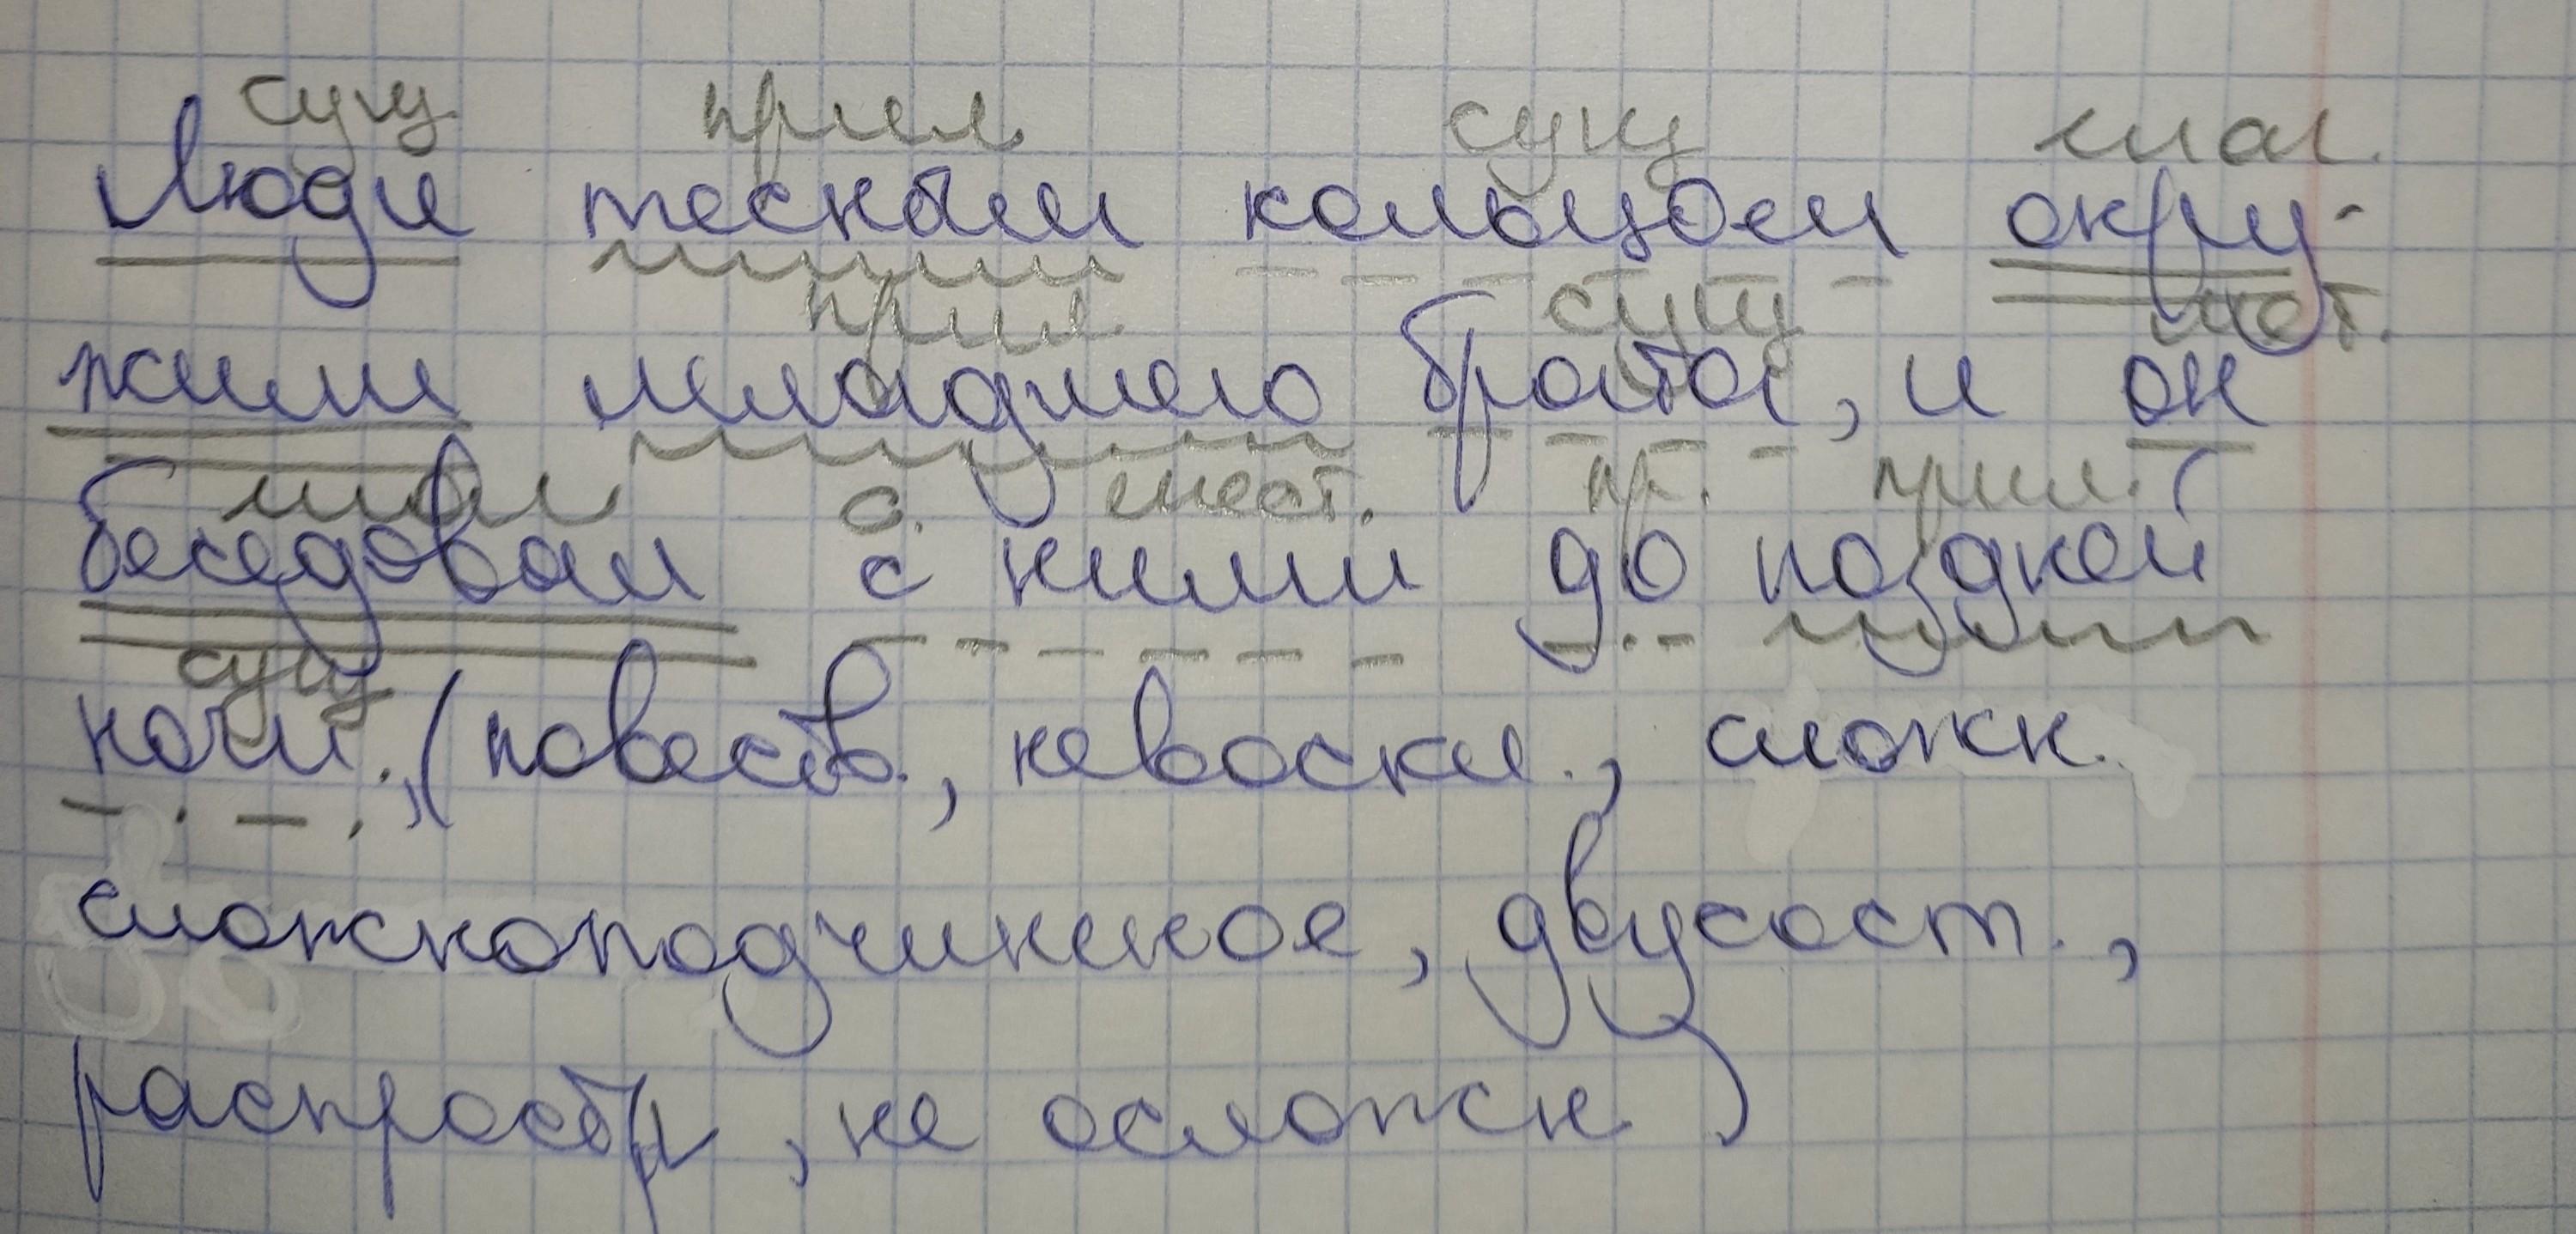 сущ прил сущ глаг.
Люди тесным кольцом окру-
прил. сущ мест.
жили младшего брата, и он
глаг с. мест. пр. прил.
беседовал с ними до поздней
сущ
ночи., (повеств., невоскл., сложн.
сложноподчиненное, двусост.,
распростр, не осложн)